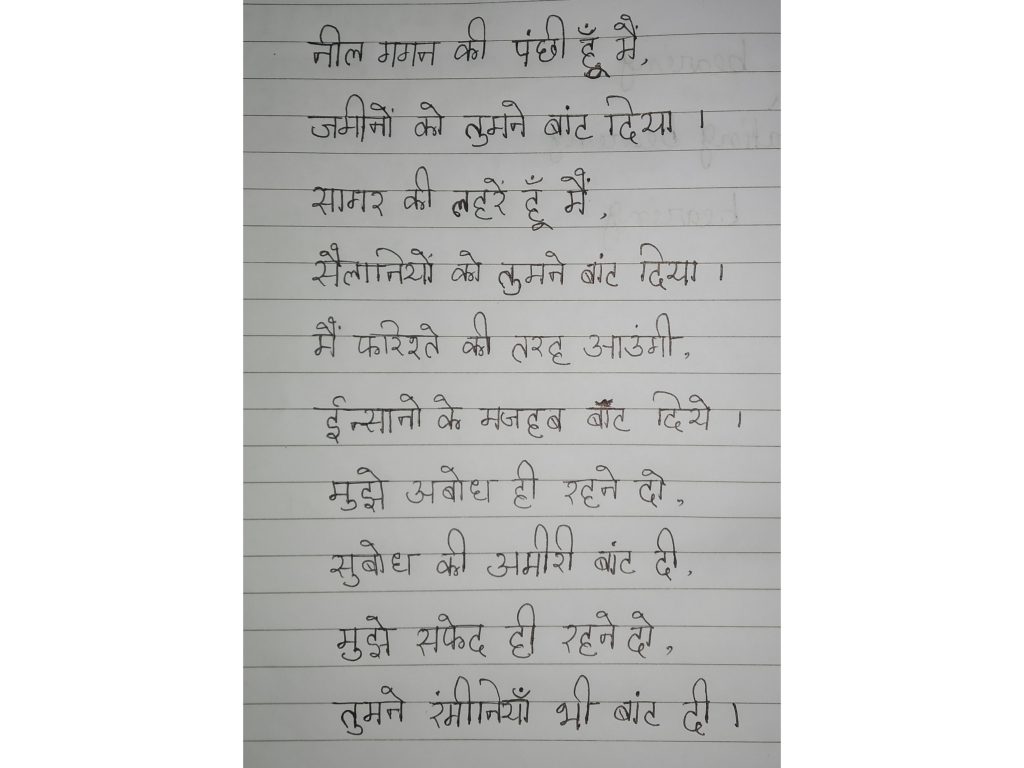 नील गगन की पंछी हूँ मैं,
जमीनों को तुमने बांट दिया ।
सागर की लहरें हूँ मैं,
सैलानियों को तुमने बांट दिया ।
मैं फरिश्ते की तरह आउंगी,
ईन्सानो के मजहब बांट दिये ।
मुझे अबोध ही रहने दो,
सुबोध की अमीरी बांट दी,
मुझे सफेद ही रहने दो,
तुमने रंगीनियाँ भी बांट दी ।